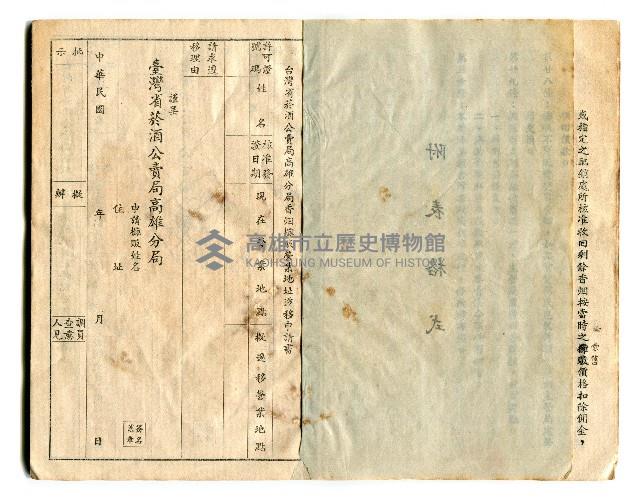 或指定之配銷處所核准收回剩餘香烟按當時之牌價價格扣除佣金，
附表格式
台灣省菸酒公賣局高雄分局香烟攤販營業地址遷移申請書
許可證號碼
姓名
核准發證日期
現在營業地點
擬遷移營業地點
請求遷移理由
謹呈
臺灣省菸酒公賣局高雄分局
申請攤販姓名
住址
簽名蓋章
中華民國 年 月 日
批示
擬辦
調查員意見
高雄市立歷史博物館
KAOHSIUNG MUSEUM OF HISTORY